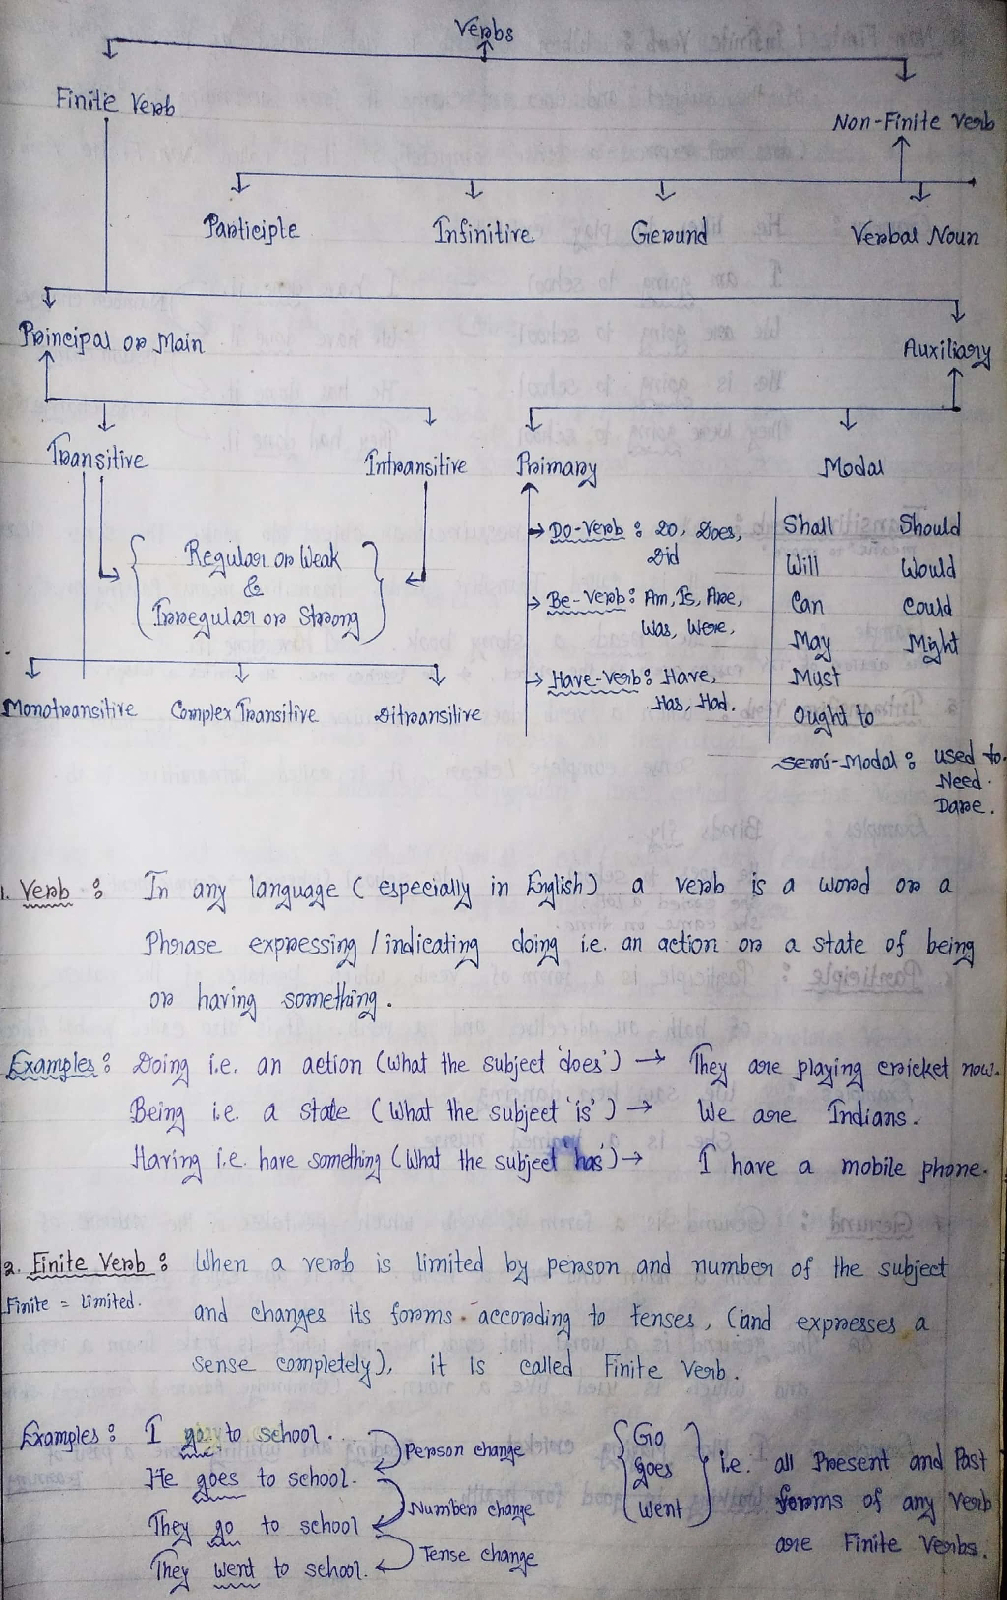 Verbs
Finite Verb
Non-Finite Verb
Participle Infinitive Gerund Verbal Noun
Principal or Main
Auxiliary
Transitive Intransitive Primary Modal
Regular or Weak
&
Irregular or Strong
Do-Verb : Do, Does,
Did
Be-Verb : Am, Is, Are,
Was, Were,
Have-Verb : Have,
Has, Had.
Shall Should
Will Would
Can Could
May Might
Must
Ought to
Semi-Modal : used to.
Need.
Dare.
Monotransitive Complex Transitive Ditransitive
1. Verb : In any language ( especially in English ) a verb is a word or a
Phrase expressing / indicating doing i.e. an action or a state of being
or having something.
Examples : Doing i.e. an action (What the subject 'does') → They are playing cricket now.
Being i.e. a state (What the subject 'is') → We are Indians.
Having i.e. have something (What the subject 'has') → I have a mobile phone.
2. Finite Verb : When a verb is limited by person and number of the subject
Finite = Limited.
and changes its forms according to tenses, (and expresses a
sense completely), it is called Finite Verb.
Examples : I go to school.
He goes to school.
They go to school
They went to school.
Person change
Number change
Tense change
Go
goes
went
i.e. all Present and Past
forms of any verb
are Finite Verbs.